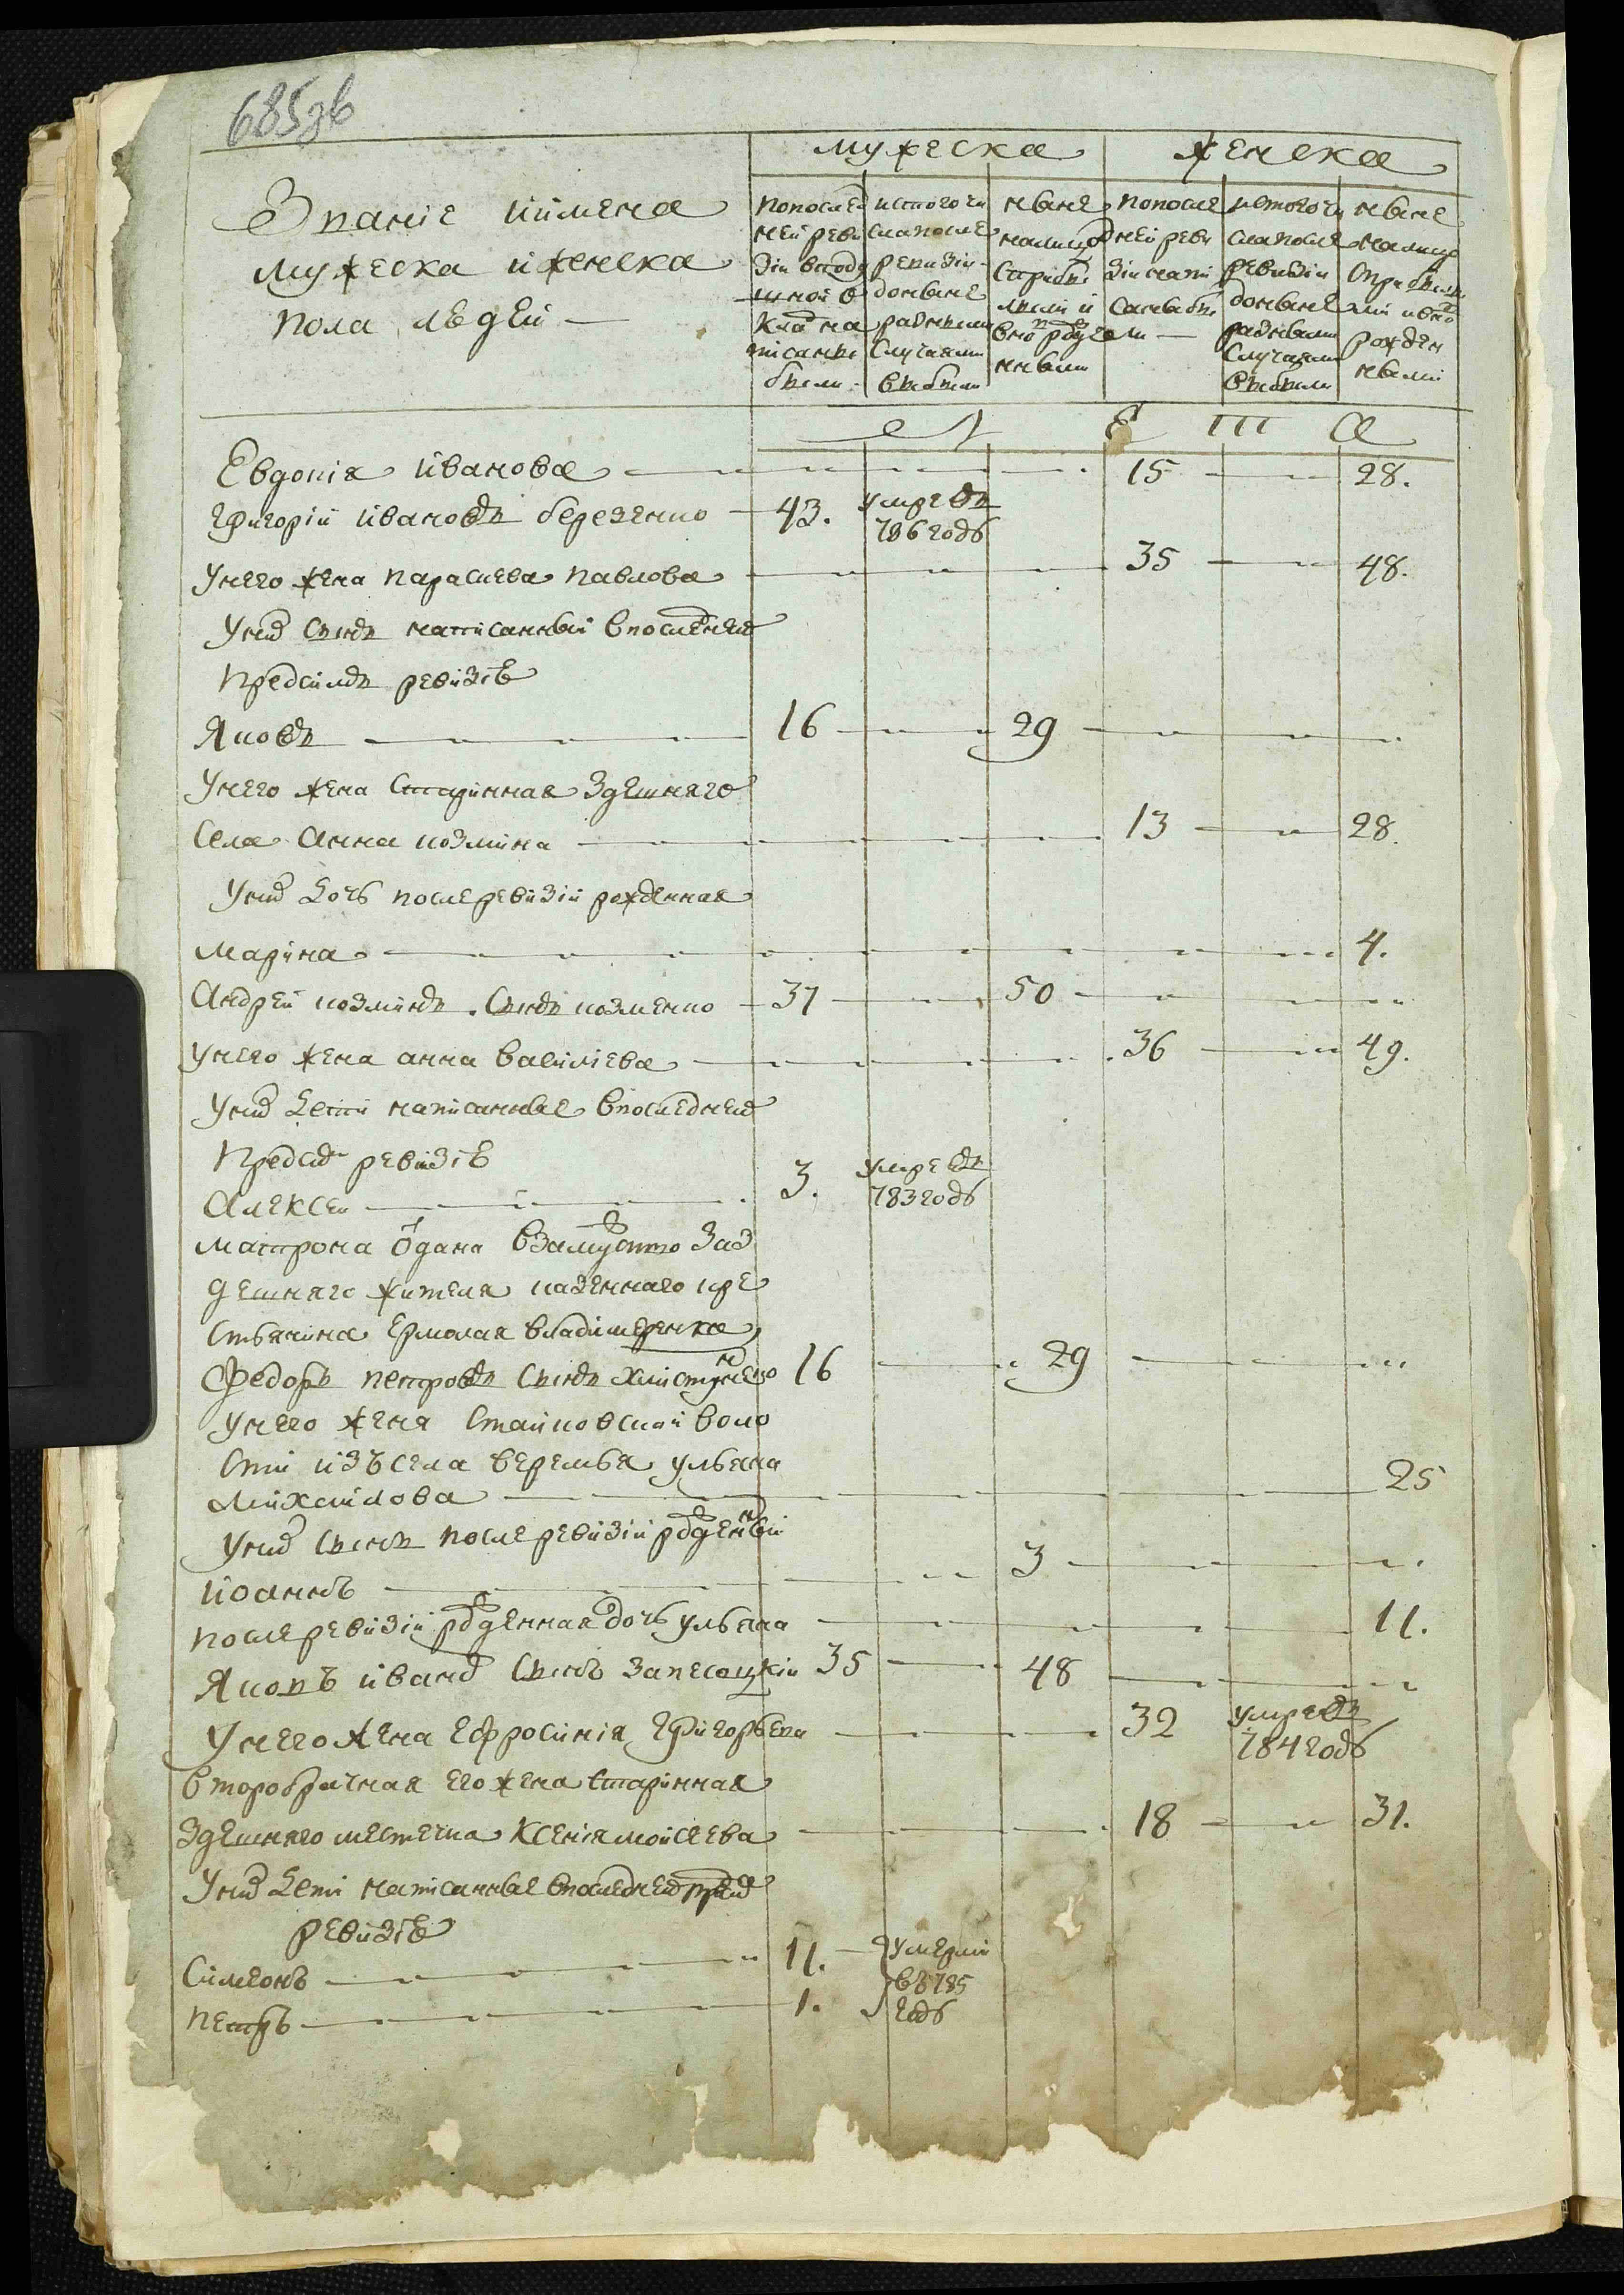 685зв
Звание и имена
мужеска и женска
пола людей —
мужеска
женска
по послед
ней реви
зiи в подуш
ной о
клад на
писанны
были
ис того чи
сла после
ревизiи
до ныне
разными
случаями
выбыли
ныне
на лицо
с прибы
лыми и
вно рожден
ными
по после
ней реви
зiи напи
саны бы
ли —
ис того чи
сла после
ревизiи
до ныне
разными
случаями
выбыли
ныне
на лицо
с прибылы
ми и вно
рожден
ными
Л Е Т А
Евдокiя Иванова — 15 — 28.
Григорiй Ивановъ березенко — 43. умре въ
786 годѣ
У него жена параскева павлова — 35 — 48.
У них сынъ написанный в последней
пред симъ ревизiѣ
Яковъ — 16 — 29 —
У него жена старинная здешняго
села Анна козмина — 13 — 28.
У них дочь после ревизiи рожденная
марина — 4.
Андрей козминъ сынъ козменко — 37 — 50 —
У него жена анна василiева — 36 — 49.
У них дети написанные в последней
пред сим ревизiѣ
Алексей — 3. умре въ
783 годѣ
матрона отдана в замужство за з
дешняго жителя казенного кре
стьянина Ермолая владимеренка
Федоръ петровъ сынъ 16 — 29 —
У него жена Стайковской воло
сти изъ села веремья ульяна
Михайлова — 25
У них сынъ после ревизiи рожденный
иоаннъ — 3 —
после ревизiи рожденная дочь ульяна — 11.
Яковъ иванов сынъ запесоцкiй 35 — 48 —
У него жена Ефросинiя Григорьева — 32 умре въ
784 годѣ
второбрачная его жена старинная
здешняго местечка Ксенiя моисеева — 18 — 31.
У них дети написанные в последней пред сим
ревизiѣ
Симеонъ — 11. — умерли
въ 785
петръ — 1. годѣ